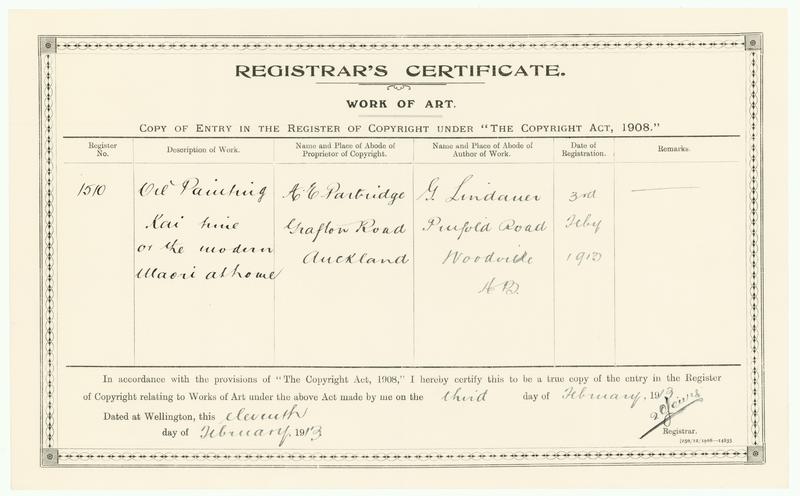 REGISTRAR'S CERTIFICATE.
WORK OF ART.
COPY OF ENTRY IN THE REGISTER OF COPYRIGHT UNDER "THE COPYRIGHT ACT, 1908."
Register No.
Description of Work.
Name and Place of Abode of Proprietor of Copyright.
Name and Place of Abode of Author of Work.
Date of Registration.
Remarks.
1510 Oil Painting H E Partridge G. Lindauer 3rd
Kai time Grafton Road Pinfold Road Feby
or the modern Auckland Woodville 1913
Maori at home
In accordance with the provisions of "The Copyright Act, 1908," I hereby certify this to be a true copy of the entry in the Register
of Copyright relating to Works of Art under the above Act made by me on the third day of February, 1913
Dated at Wellington, this eleventh
day of February, 1913
Registrar.